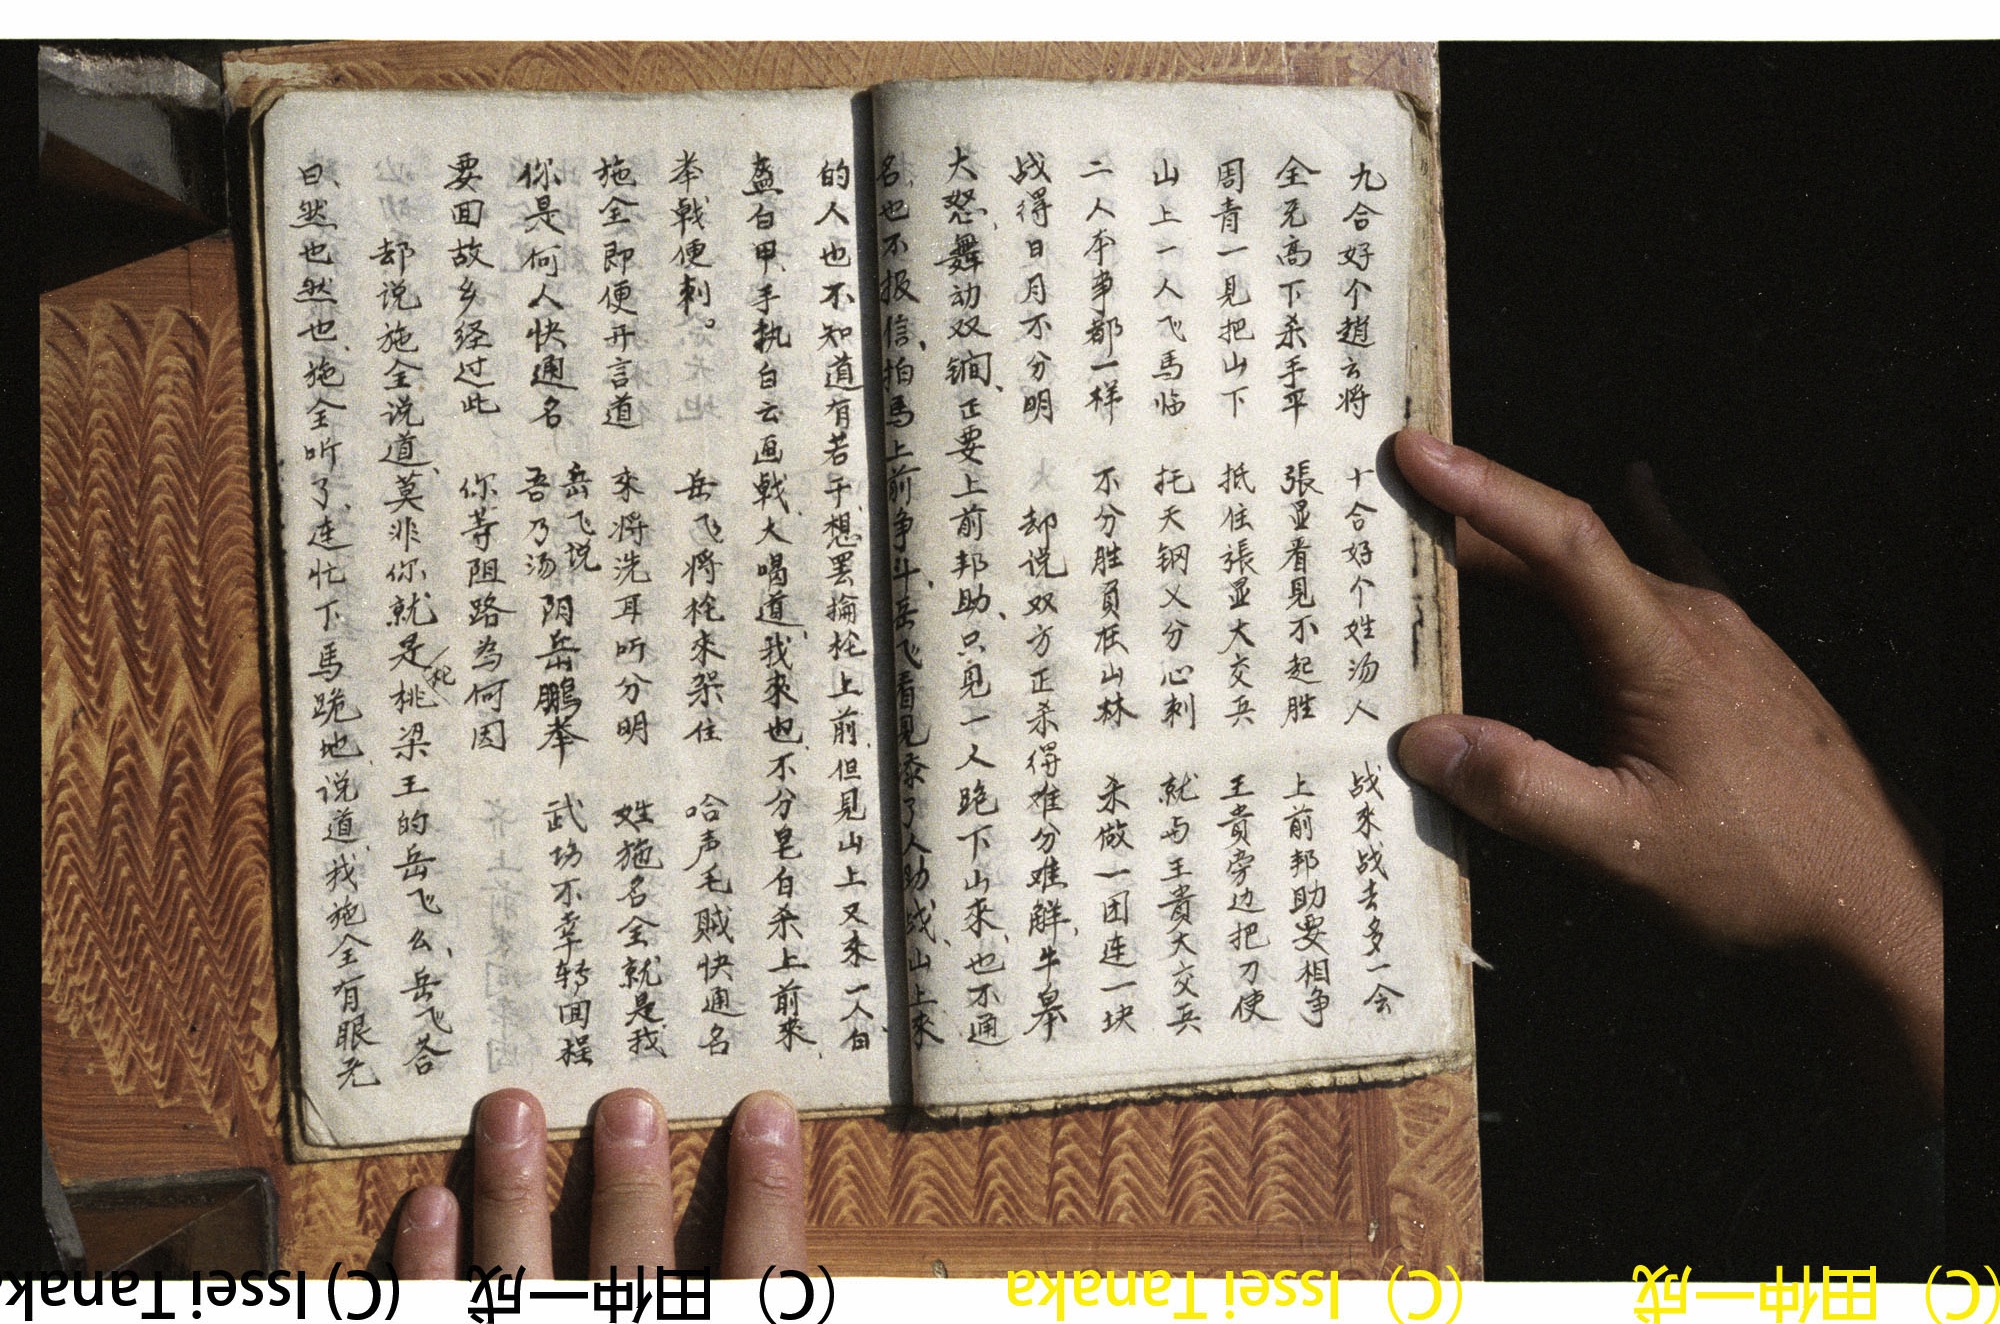 九合好个趙云将 十合好个姓汤人 战來战去多一会
全无高下杀手平 張显看見不起胜 上前邦助要相争
周青一見把山下 抵住張显大交兵 王貴旁边把刀使
山上一人飞馬临 托天钢乂分心刺 就与王貴大交兵
二人本事都一样 不分胜負在山林 杀做一团连一块
战得日月不分明
却说双方正杀得难分难解、牛皋
大怒、舞动双锏、正要上前邦助、只見一人跑下山來、也不通
名、也不报信、拍馬上前争斗、岳飞看見添了人助战、山上來
的人也不知道有若干、想罢掄枪上前、但見山上又來一人、白
盔白甲、手執白云画戟、大喝道、我來也、不分皂白杀上前來、
举戟便刺。 岳飞将枪來架住 哈声毛贼快通名
施全即便开言道 來将洗耳听分明 姓施名全就是我
岳飞说
你是何人快通名 吾乃汤阴岳鹏举 武场不幸转回程
要回故乡经过此 你等阻路為何因
却说施全说道、莫非你就是枪桃梁王的岳飞么、岳飞答
曰、然也然也、施全听了、连忙下馬跪地、说道、我施全有眼无
(C) Issei Tanaka
(C) 田仲一成
(C) Issei Tanaka
(C) 田仲一成